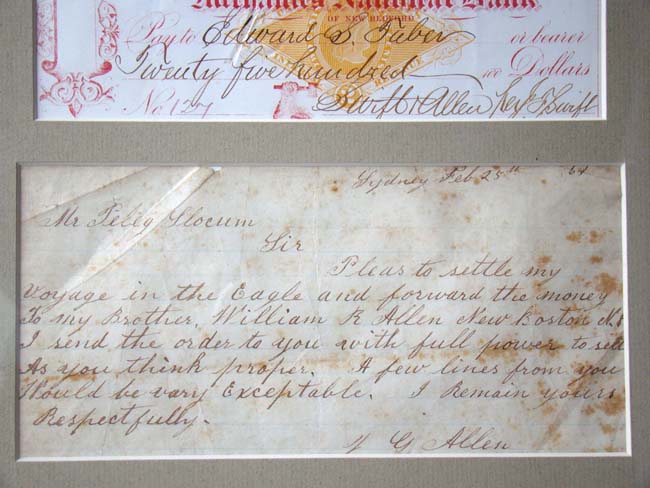 National Bank
OF NEW BEDFORD
Pay to Edward S. Taber or bearer
Twenty five hundred Dollars
No. 127 Swift & Allen
Sydney Feb 25th 64
Mr Peleg Slocum
Sir
Pleas to settle my
Voyage in the Eagle and forward the money
To my Brother, William R Allen New Boston N.
I send the order to you with full power to
As you think proper. A few lines from you
Would be vary Exceptable. I Remain yours
Respectfully.
G Allen